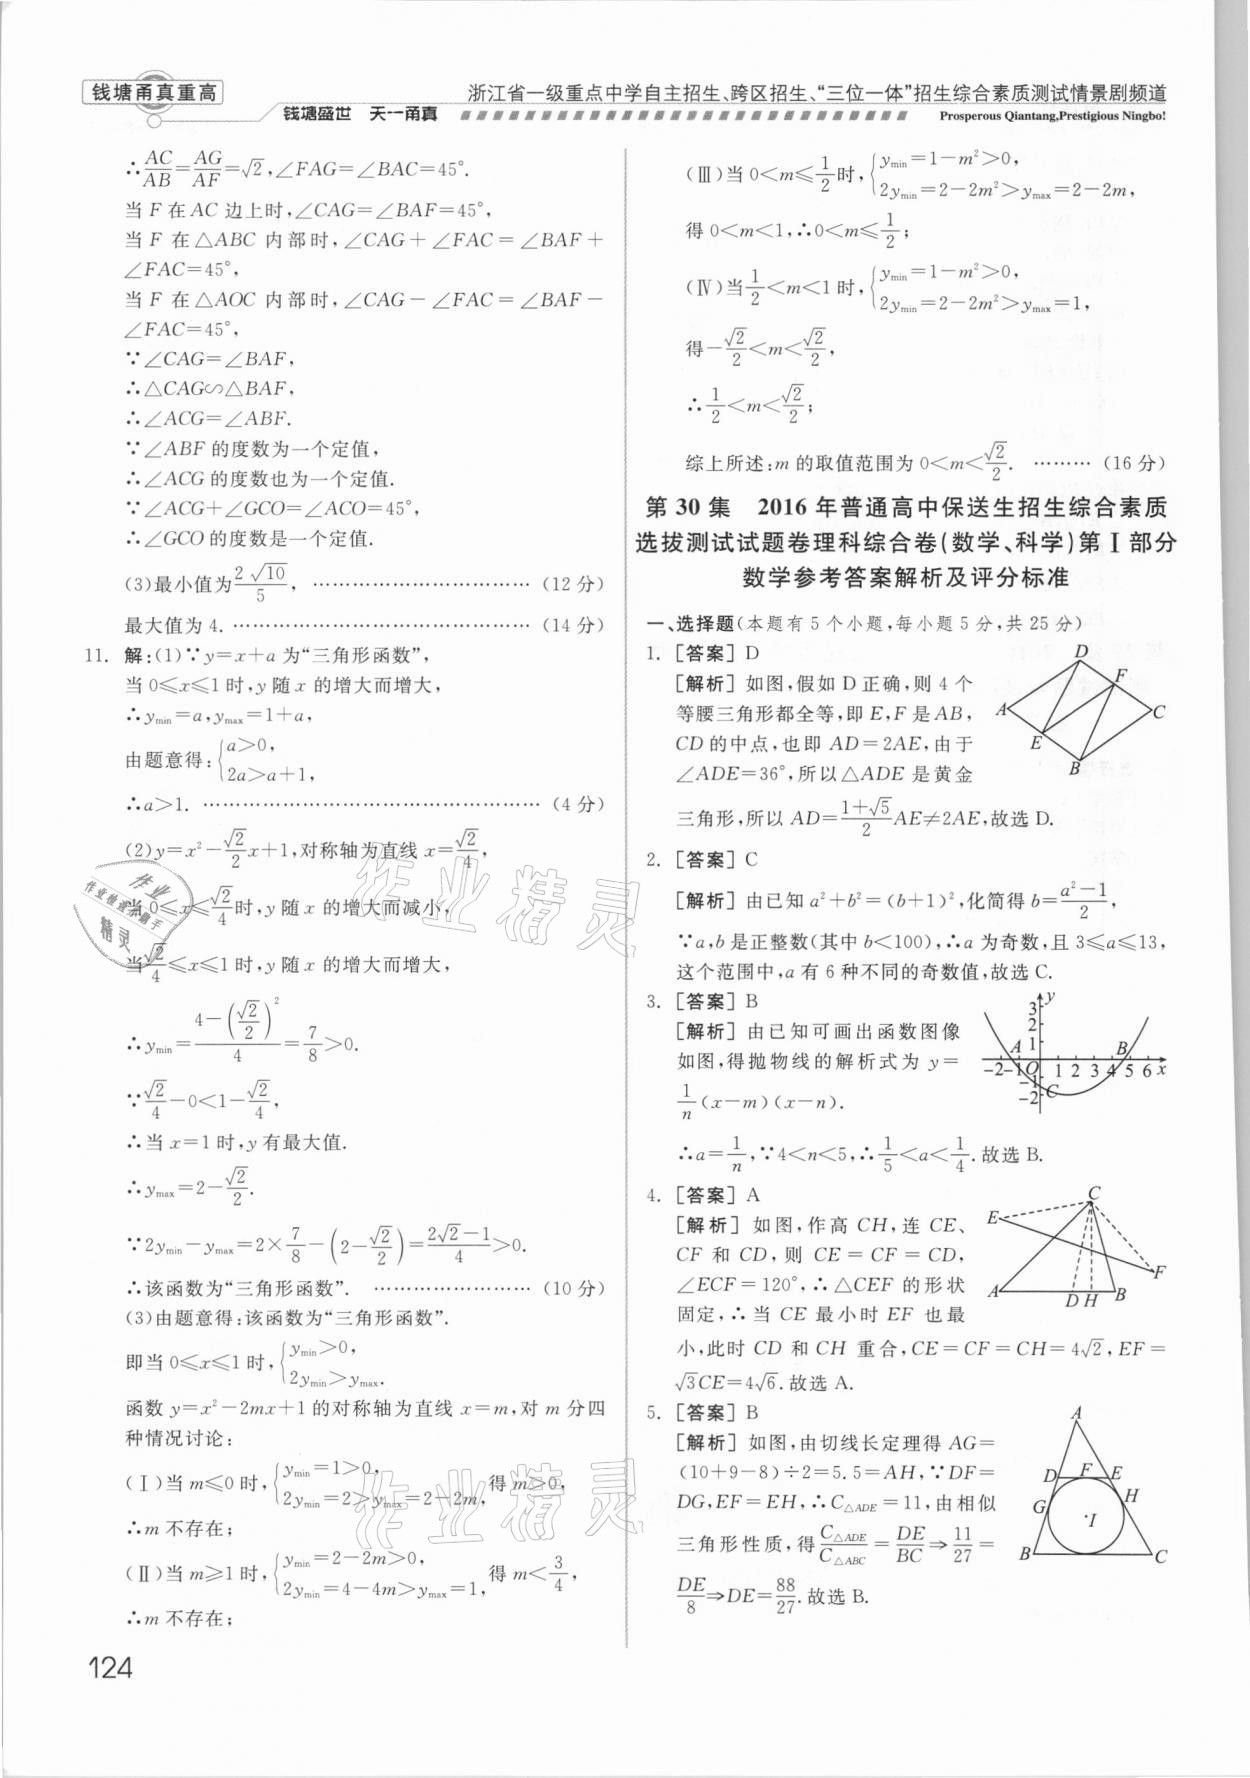 钱塘甬真重高
浙江省一级重点中学自主招生、跨区招生、“三位一体”招生综合素质测试情景剧频道
钱塘盛世 天一甬真
Prosperous Qiantang,Prestigious Ningbo!
∴AC/AB=AG/AF=√2,∠FAG=∠BAC=45°.
当 F 在 AC 边上时,∠CAG=∠BAF=45°,
当 F 在△ABC 内部时,∠CAG+∠FAC=∠BAF+
∠FAC=45°,
当 F 在△AOC 内部时,∠CAG-∠FAC=∠BAF-
∠FAC=45°,
∵∠CAG=∠BAF,
∴△CAG∽△BAF,
∴∠ACG=∠ABF.
∵∠ABF 的度数为一个定值,
∴∠ACG 的度数也为一个定值.
∵∠ACG+∠GCO=∠ACO=45°,
∴∠GCO 的度数是一个定值.
(3)最小值为2√10/5, ……………………………(12 分)
最大值为 4. ……………………………………(14 分)
11. 解:(1)∵y=x+a 为“三角形函数”,
当 0≤x≤1 时,y 随 x 的增大而增大,
∴ymin=a,ymax=1+a,
由题意得:{a>0,
2a>a+1,
∴a>1. ……………………………………………(4 分)
(2)y=x²-√2/2x+1,对称轴为直线 x=√2/4,
当 0≤x≤√2/4时,y 随 x 的增大而减小,
当√2/4≤x≤1 时,y 随 x 的增大而增大,
∴ymin=(4-(√2/2)²)/4=7/8>0.
∵√2/4-0<1-√2/4,
∴当 x=1 时,y 有最大值.
∴ymax=2-√2/2.
∵2ymin-ymax=2×7/8-(2-√2/2)=(2√2-1)/4>0.
∴该函数为“三角形函数”. ……………………(10 分)
(3)由题意得:该函数为“三角形函数”.
即当 0≤x≤1 时,{ymin>0,
2ymin>ymax.
函数 y=x²-2mx+1 的对称轴为直线 x=m,对 m 分四
种情况讨论:
(Ⅰ)当 m≤0 时,{ymin=1>0,
2ymin=2>ymax=2-2m, 得 m>0,
∴m 不存在;
(Ⅱ)当 m≥1 时,{ymin=2-2m>0,
2ymin=4-4m>ymax=1, 得 m<3/4,
∴m 不存在;
124
(Ⅲ)当 0<m≤1/2时,{ymin=1-m²>0,
2ymin=2-2m²>ymax=2-2m,
得 0<m<1,∴0<m≤1/2;
(Ⅳ)当1/2<m<1 时,{ymin=1-m²>0,
2ymin=2-2m²>ymax=1,
得-√2/2<m<√2/2,
∴1/2<m<√2/2;
综上所述:m 的取值范围为 0<m<√2/2. ………(16 分)
第 30 集 2016 年普通高中保送生招生综合素质
选拔测试试题卷理科综合卷(数学、科学)第Ⅰ部分
数学参考答案解析及评分标准
一、选择题(本题有 5 个小题,每小题 5 分,共 25 分)
1. [答案] D
[解析] 如图,假如 D 正确,则 4 个
等腰三角形都全等,即 E,F 是 AB,
CD 的中点,也即 AD=2AE,由于
∠ADE=36°,所以△ADE 是黄金
三角形,所以 AD=(1+√5)/2AE≠2AE,故选 D.
D
F
A
C
E
B
2. [答案] C
[解析] 由已知 a²+b²=(b+1)²,化简得 b=(a²-1)/2,
∵a,b 是正整数(其中 b<100),∴a 为奇数,且 3≤a≤13,
这个范围中,a 有 6 种不同的奇数值,故选 C.
3. [答案] B
[解析] 由已知可画出函数图像
如图,得抛物线的解析式为 y=
1/n(x-m)(x-n).
∴a=1/n,∵4<n<5,∴1/5<a<1/4.故选 B.
y
3
2
1
A
B
-2 -1 O 1 2 3 4 5 6 x
-1
-2
C
4. [答案] A
[解析] 如图,作高 CH,连 CE、
CF 和 CD,则 CE=CF=CD,
∠ECF=120°,∴△CEF 的形状
固定,∴当 CE 最小时 EF 也最
小,此时 CD 和 CH 重合,CE=CF=CH=4√2,EF=
√3CE=4√6.故选 A.
C
E
F
A
D H B
5. [答案] B
[解析] 如图,由切线长定理得 AG=
(10+9-8)÷2=5.5=AH,∵DF=
DG,EF=EH,∴C△ADE=11,由相似
三角形性质,得C△ADE/C△ABC=DE/BC⇒11/27=
DE/8⇒DE=88/27.故选 B.
A
D F E
G H
·I
B C
作业精灵
作业精灵
作业
作业检查小助手
精灵